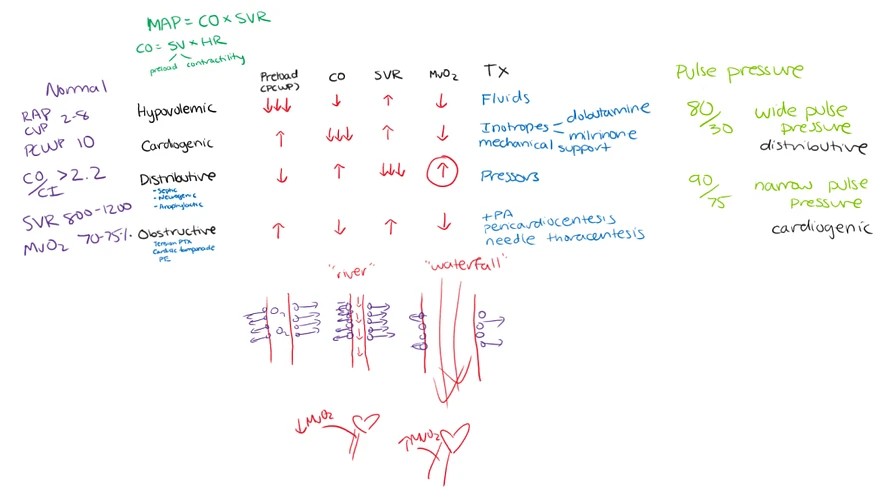 MAP = CO × SVR
CO = SV × HR
preload contractility
Normal
RAP
CVP 2-8
PCWP 10
CO/CI >2.2
SVR 800-1200
MvO2 70-75%
Preload (PCWP) CO SVR MvO2 Tx
Hypovolemic ↓↓↓ ↓ ↑ ↓ Fluids
Cardiogenic ↑ ↓↓↓ ↑ ↓ Inotropes dobutamine
milrinone
mechanical support
Distributive ↓ ↑ ↓↓↓ ↑ Pressors
- Septic
- Neurogenic
- Anaphylactic
Obstructive ↑ ↓ ↑ ↓ tPA
pericardiocentesis
needle thoracentesis
Tension PTX
Cardiac tamponade
PE
Pulse pressure
80/30 wide pulse
pressure
distributive
90/75 narrow pulse
pressure
cardiogenic
"river" "waterfall"
O2
O2
↓MvO2
↑MvO2